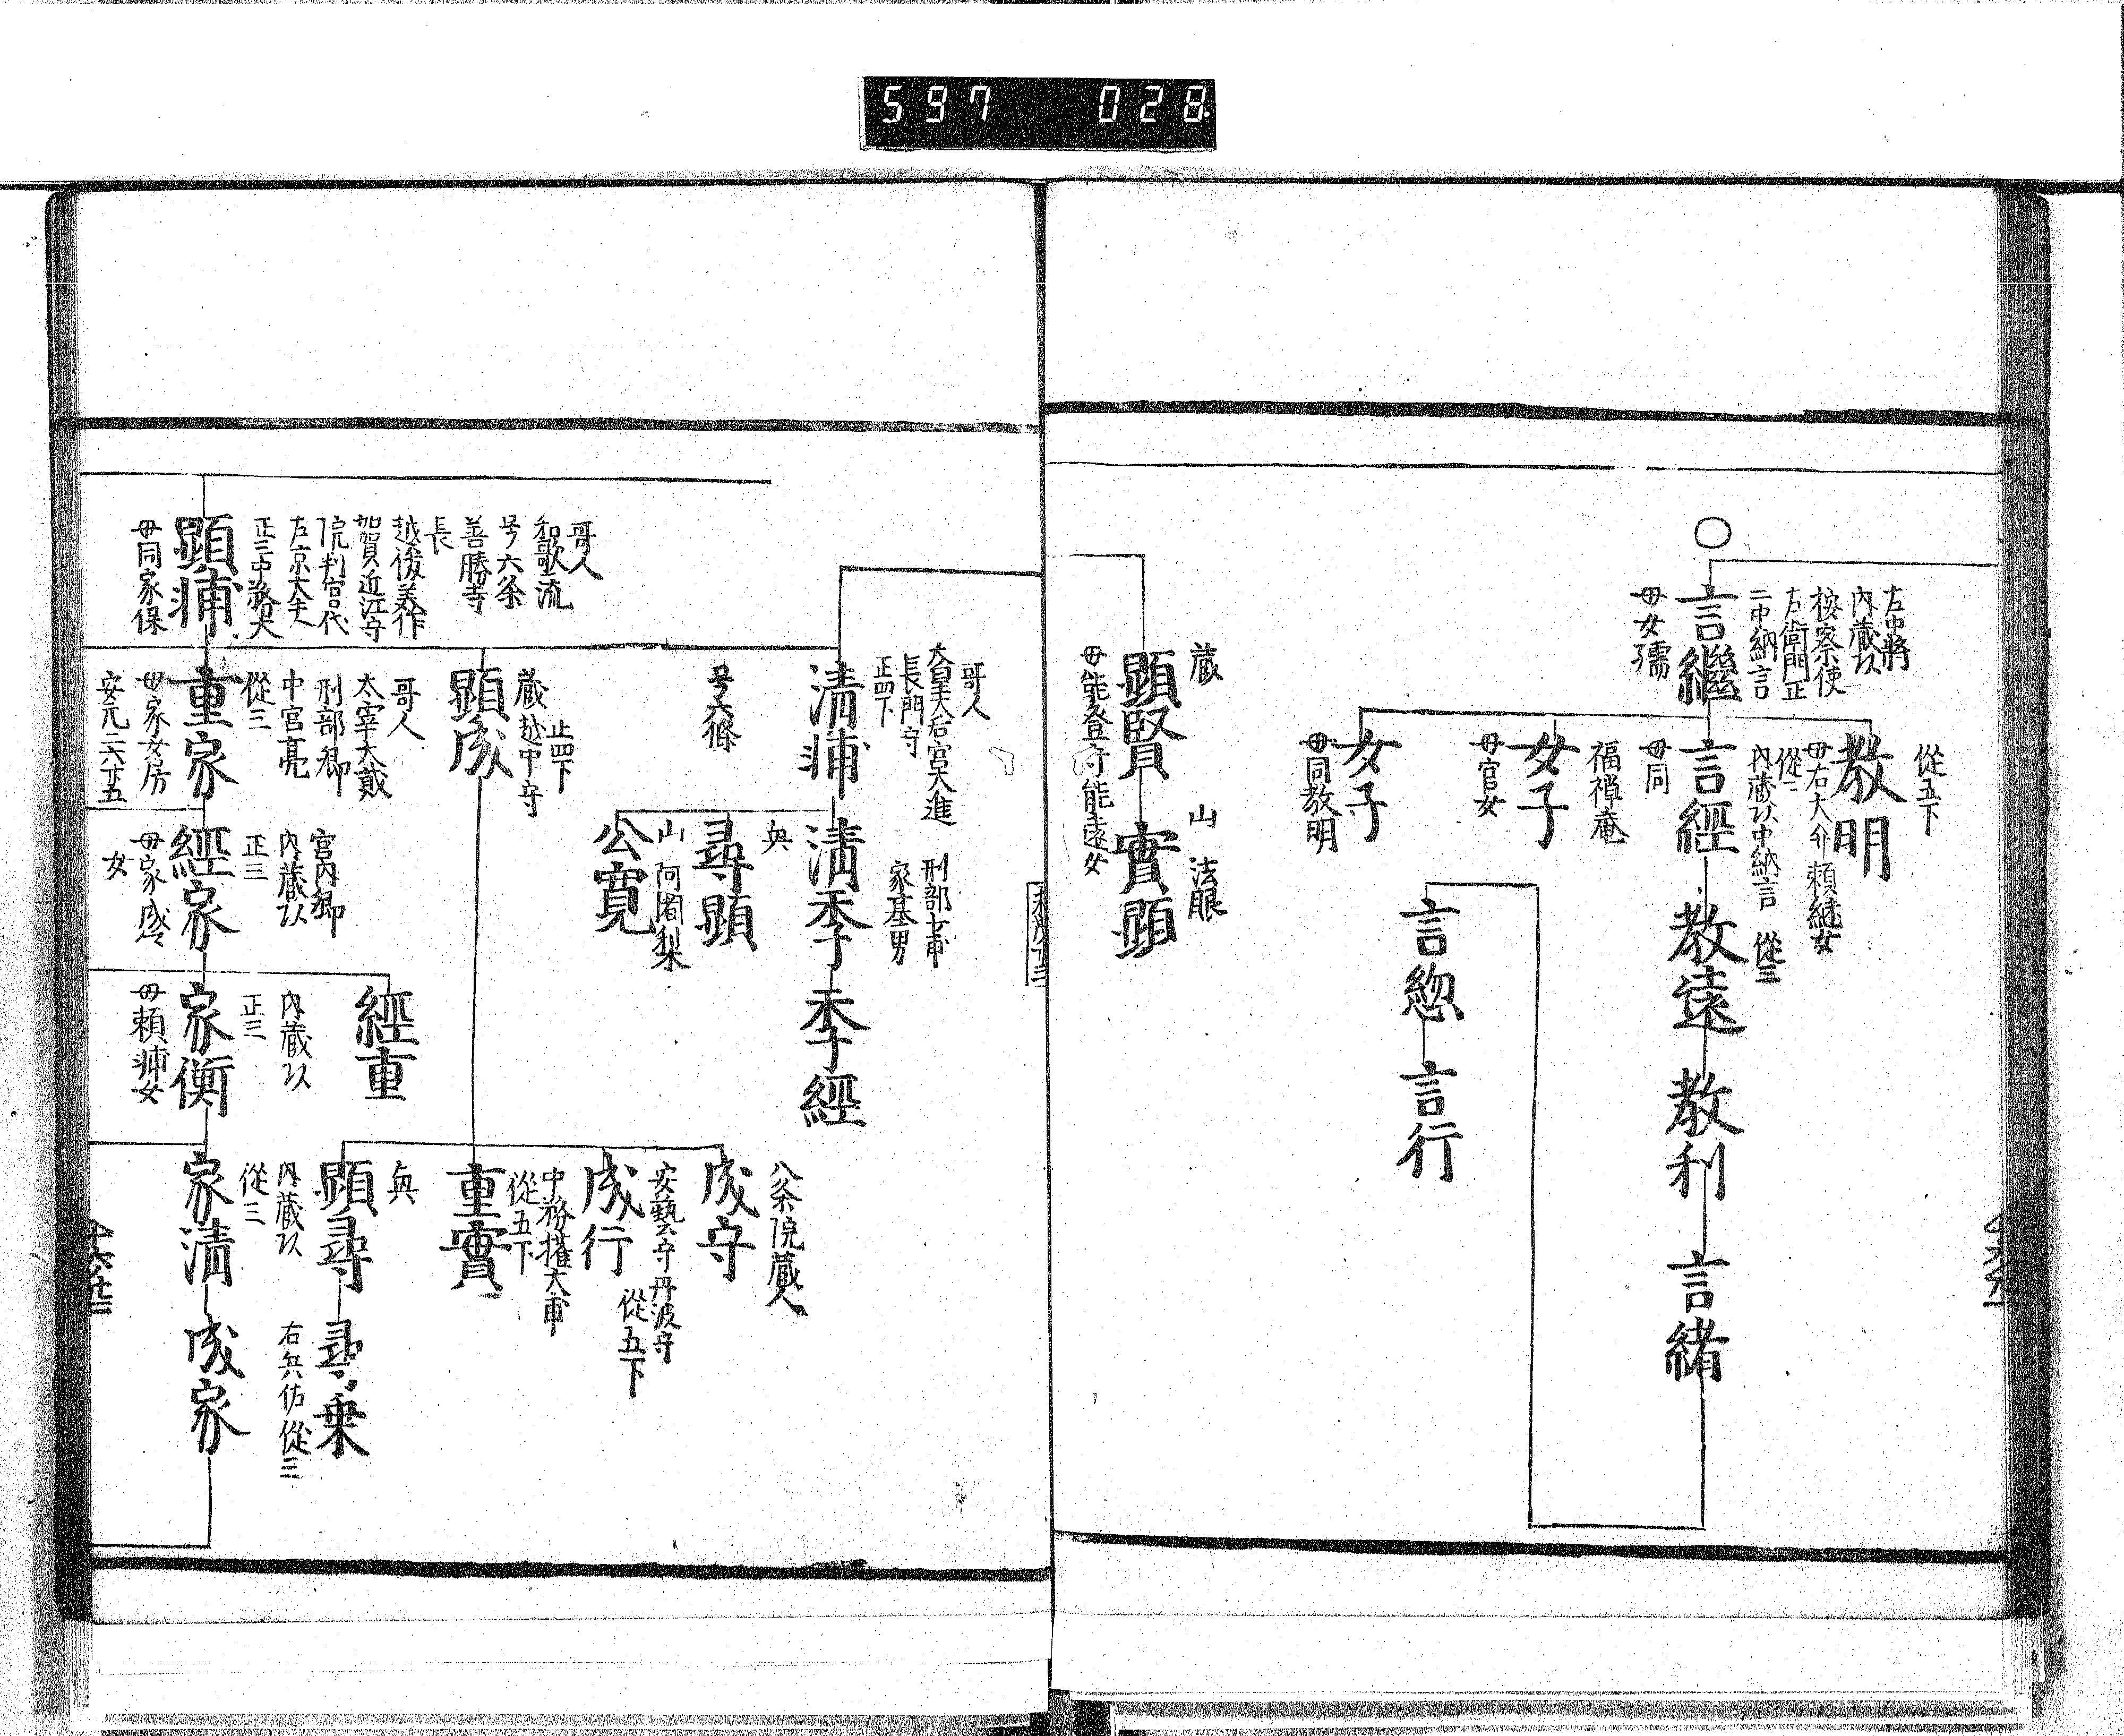 597 028
左中将
内蔵以
按察使
左衛門正
二中納言
言繼
母女孺
從五下
教明
母右大弁頼継女
從二
内蔵以中納言 從三
言經
母同
教遠
教利
言緒
福禅庵
女子
母官女
女子
母同教明
言惣
言行
蔵
顕賢
母能登守能遠女
山 法眼
實顕
哥人
太皇太后宮大進
長門守
正四下
清輔
号六條
刑部少甫
家基男
清季
季經
尋顕
山 阿闍梨
公寛
正四下
蔵越中守
顕成
八条院蔵人
成守
安藝守丹波守
從五下
成行
中務権大甫
從五下
重實
顕尋
尋乗
哥人
和歌流
号六条
善勝寺
長
越後美作
加賀近江守
院判官代
左京大夫
正三中務大
顕輔
母同家保
哥人
太宰大貳
刑部卿
中宮亮
從三
重家
母家女房
安元二六廿五
宮内卿
内蔵以
正三
經家
母家成
女
經重
内蔵以
正三
家衡
母頼輔女
内蔵以
從三
家清
右兵佐從三
成家